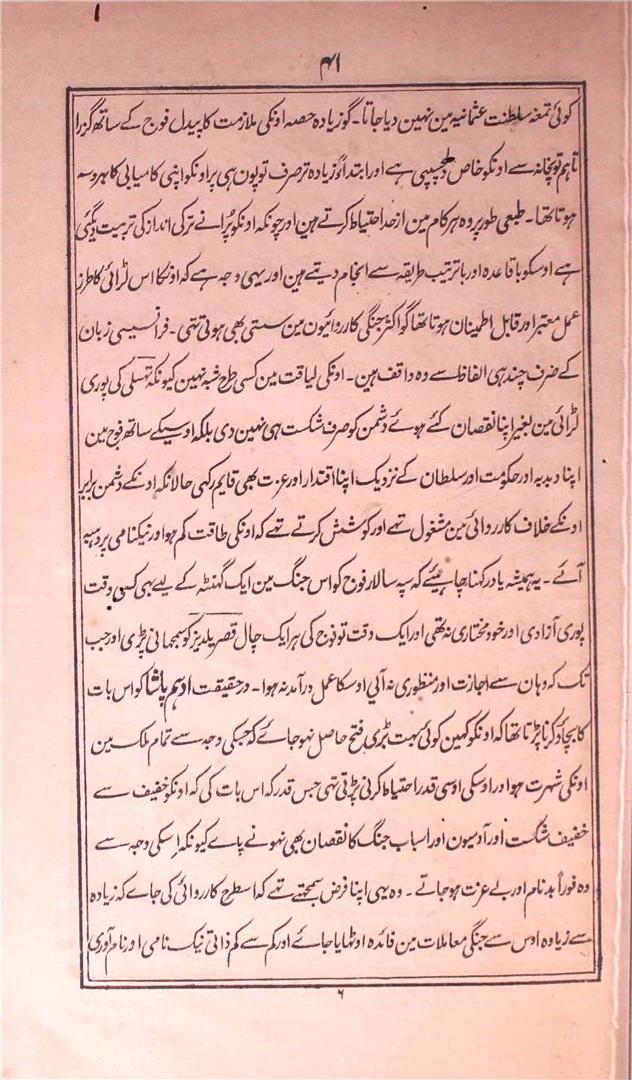 ۴۱
کوئی تمغہ سلطنت عثمانیہ مین نہین دیا جاتا۔ گو زیادہ حصہ اونکی ملازمت کا پیدل فوج کے ساتھ گزرا
تاہم توپخانہ سے اونکو خاص دلچسپی ہے اور ابتداءً زیادہ تر صرف توپون ہی پر اونکو اپنی کامیابی کا بہروسہ
ہوتا تھا۔ طبعی طور پر وہ ہر کام مین از حد احتیاط کرتے ہین اور چونکہ اونکو پرانے ترکی انداز کی تربیت دیگئی
ہے اوسکو باقاعدہ اور باترتیب طریقہ سے انجام دیتے ہین اور یہی وجہ ہے کہ اونکا اس لڑائی کا طرز
عمل معتبر اور قابل اطمینان ہوتا تھا گو اکثر جنگی کارروائیون مین سستی بھی ہوتی تہی۔ فرانسیسی زبان
کے صرف چند ہی الفاظ سے وہ واقف ہین۔ اونکی لیاقت مین کسی طرح شبہ نہین کیونکہ تھسلی کی پوری
لڑائی مین بغیر اپنا نقصان کئے ہوئے دشمن کو صرف شکست ہی نہین دی بلکہ اوسیکے ساتھ فوج مین
اپنا دبدبہ اور حکومت اور سلطان کے نزدیک اپنا اقتدار اور عزت بھی قایم رکہی حالانکہ اونکے دشمن برابر
اونکے خلاف کارروائی مین مشغول تہے اور کوشش کرتے تہے کہ اونکی طاقت کم ہو اور نیکنامی پر دہبہ
آئے۔ یہ ہمیشہ یاد رکہنا چاہیئے کہ سپہ سالار فوج کو اس جنگ مین ایک گہنٹہ کے لیے بہی کسی وقت
پوری آزادی اور خود مختاری نہ تھی اور ایک وقت تو فوج کی ہر ایک چال قصر یلدیز کو سمجھانی پڑی اور جب
تک کہ وہان سے اجازت اور منظوری نہ آلی اوسکا عمل درآمد نہ ہوا۔ درحقیقت ادہم پاشا کو اس بات
کا بچاؤ کرنا پڑتا تھا کہ اونکو کہین کوئی بہت بڑی فتح حاصل نہو جائے کہ جسکی وجہ سے تمام ملک مین
اونکی شہرت ہو اور اوسکی اوسی قدر احتیاط کرنی پڑتی تہی جس قدر کہ اس بات کی کہ اونکو خفیف سے
خفیف شکست اور آدمیون اور اسباب جنگ کا نقصان بھی نہونے پاے کیونکہ اسکی وجہ سے
وہ فوراً بدنام اور بے عزت ہو جاتے۔ وہ یہی اپنا فرض سمجہتے تہے کہ اسطرح کارروائی کی جاے کہ زیادہ
سے زیادہ اوس سے جنگی معاملات مین فائدہ اوٹھایا جائے اور کم سے کم ذاتی نیک نامی اور نام آوری
۶